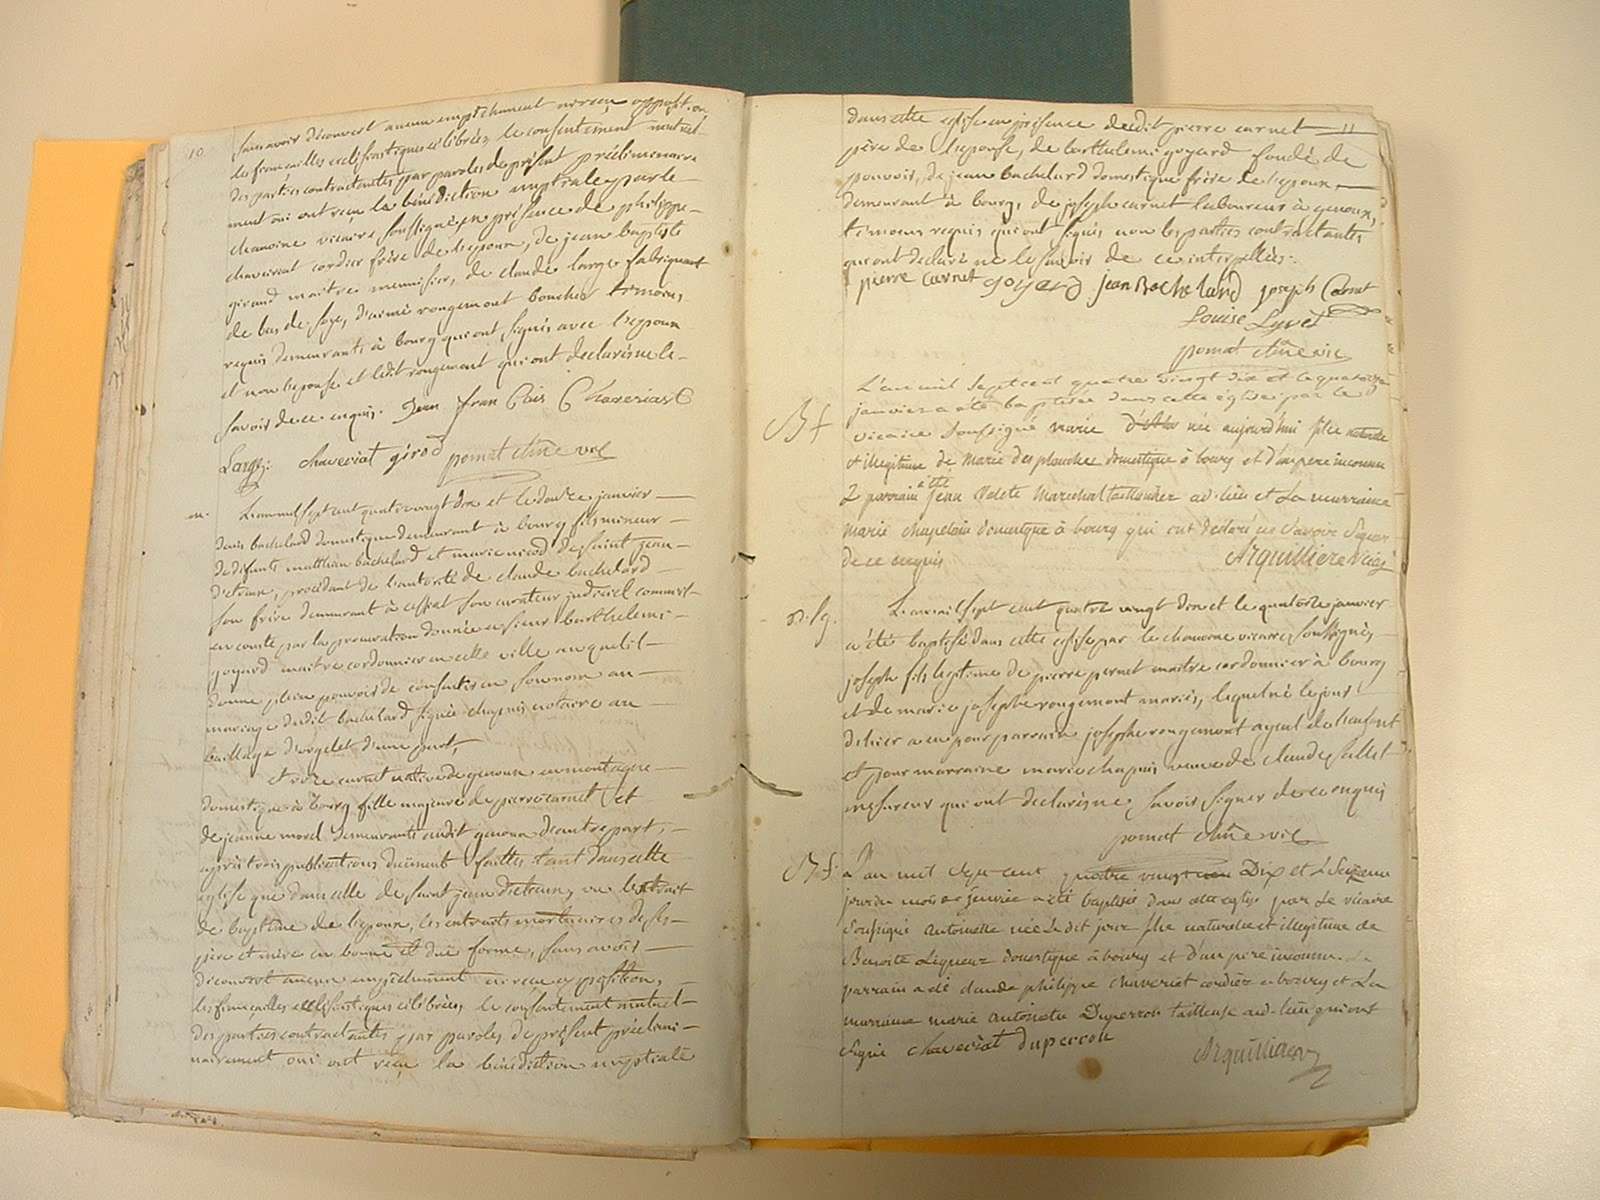 10
sans avoir decouvert aucun empêchement ni reçu opposition
les fiancailles ecclesiastiques celebrées le consentement mutuel
des parties contractantes par paroles de présent préliminaire
ment oui ont reçu la bénédiction nuptiale par le
chanoine vicaire soussigné en présence de philippe
chaveriat cordier frère de l'epoux, de jean baptiste
giraud maitre menuisier, de claude large fabriquant
de bas de soye, d'aimé rougemont boucher temoins
requis demeurants à bourg qui ont signés avec l'epoux
et non l'epouse et ledit rougemont qui ont declarés ne le
savoir de ce enquis. Jean Fran Chaveriat
Large chaveriat girod pomat chne vic
m. L'an mil sept cent quatre vingt dix et le douze janvier
denis bachelard domestique demeurant à bourg fils mineur
de defunts matthieu bachelard et marie nicod de saint jean
d'etreux, procédant de l'autorité de claude bachelard
son frère demeurant à cessiat son curateur judiciel comme il
en conste par la procuration donnée a sieur barthelemi
goyard maitre cordonnier en cette ville auquel il
donne plein pouvoir de consentir en son nom au
mariage dudit bachelard signée chapuis notaire au
bailliage d'orgelet d'une part,
et rose carnet native de genoux en montagne
domestique à bourg fille majeure de pierre carnet et
de jeanne morel demeurants audit genoux d'autre part,
après trois publications duëment faittes tant dans cette
eglise que dans celle de saint jean d'etreux, vu l'extrait
de baptême de l'epoux, les extraits mortuaires de ses
père et mère en bonne et due forme, sans avoir
decouvert aucun empêchement ni reçu opposition,
les fiancailles ecclesiastiques célébrées, le consentement mutuel
des parties contractantes par paroles de présent prélimi
nairement oui ont reçu la bénédiction nuptiale
11
dans cette eglise en présence dudit pierre carnet
père de l'epouse, de barthelemi goyard fondé de
pouvoir, de jean bachelard domestique frère de l'epoux
demeurant à bourg, de joseph carnet laboureur à genoux,
temoins requis qui ont signés non les parties contractantes
qui ont declaré ne le savoir de ce interpellées.
pierre Carnet goyard jean Bachelard joseph Carnet
Louise Lyvet
pomat chne vic
B f L'an mil sept cent quatre vingt dix et le quatorze
janvier a été baptisée dans cette eglise par le
vicaire soussigné marie née aujourd'hui fille naturelle
et illegitime de Marie desplanche domestique à bourg et d'un pere inconnu
Le parrain a été jean Valete Marechal taillandier au lieu et La marraine
marie chapelain domestique à bourg qui ont declaré ne savoir Signer
de ce enquis Arquilliere vic
B. g. L'an mil sept cent quatre vingt dix et le quatorze janvier
a été baptisé dans cette eglise par le chanoine vicaire soussigné
joseph fils legitime de pierre pernet maitre cordonnier à bourg
et de marie josephe rougemont mariés, lequel né le jour
d'hier a eu pour parrain joseph rougemont ayeul de l'enfant
et pour marraine marie chapuis veuve de claude sallet
mesureur qui ont declarés ne savoir signer de ce enquis
pomat chne vic
B. f. L'an mil sept cent quatre vingt Dix et Le Seizieme
jour du mois de janvier a été baptisée dans cette eglise par Le vicaire
soussigné antoinette née Le dit jour fille naturelle et illegitime de
Benoite Liqueux domestique à bourg et d'un pere inconnu. Le
parrain a été claude philippe chaveriat cordier a bourg et La
marraine marie antoinette Duperron tailleuse au-lieu qui ont
signé chaveriat duperron Arquilliere